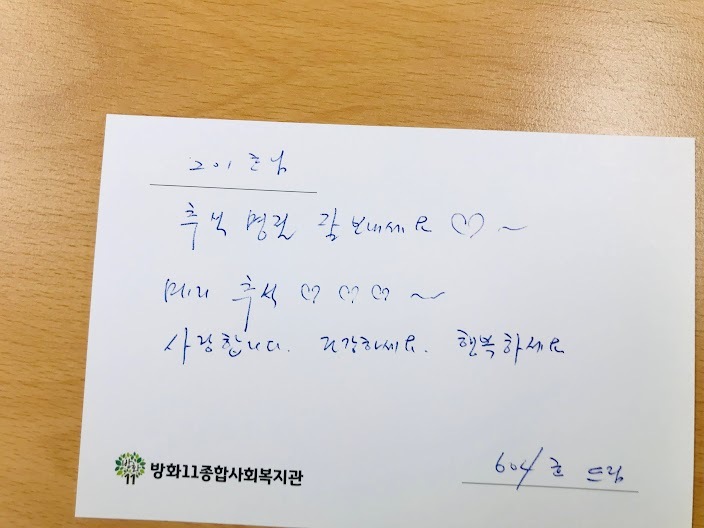 201호님
추석 명절 잘 보내세요 ♡~
메리 추석 ♡♡♡~
사랑합니다. 건강하세요. 행복하세요
방화11
방화11종합사회복지관
604호 드림